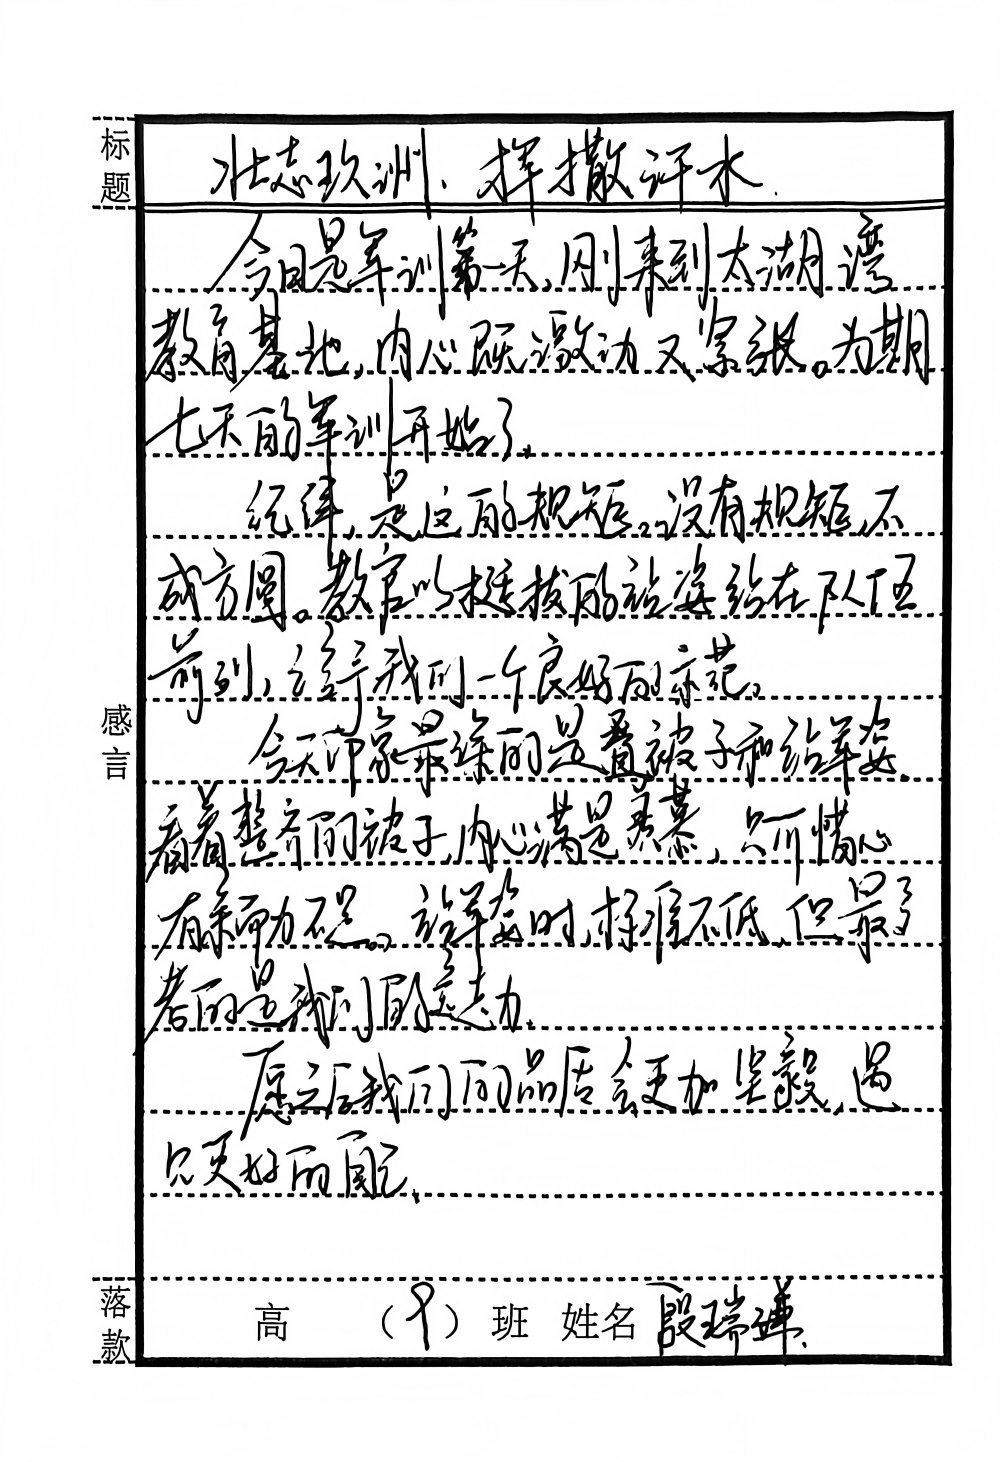 标题
壮志玖洲、挥撒汗水.
今日是军训第一天,刚来到太湖湾
教育基地,内心既激动又紧张。为期
七天的军训开始了.
纪律,是这的规矩。没有规矩,不
成方圆。教官以挺拔的站姿站在队伍
前列,给予我们一个良好的示范。
今天印象最深的是叠被子和站军姿.
看着整齐的被子,内心满是羡慕,只可惜心
有余而力不足。站军姿时,标准不低,但最
考的是我们的意志力.
愿之后我们的品质会更加坚毅,遇
见更好的自己.
感言
落款
高 (9)班 姓名 段瑞